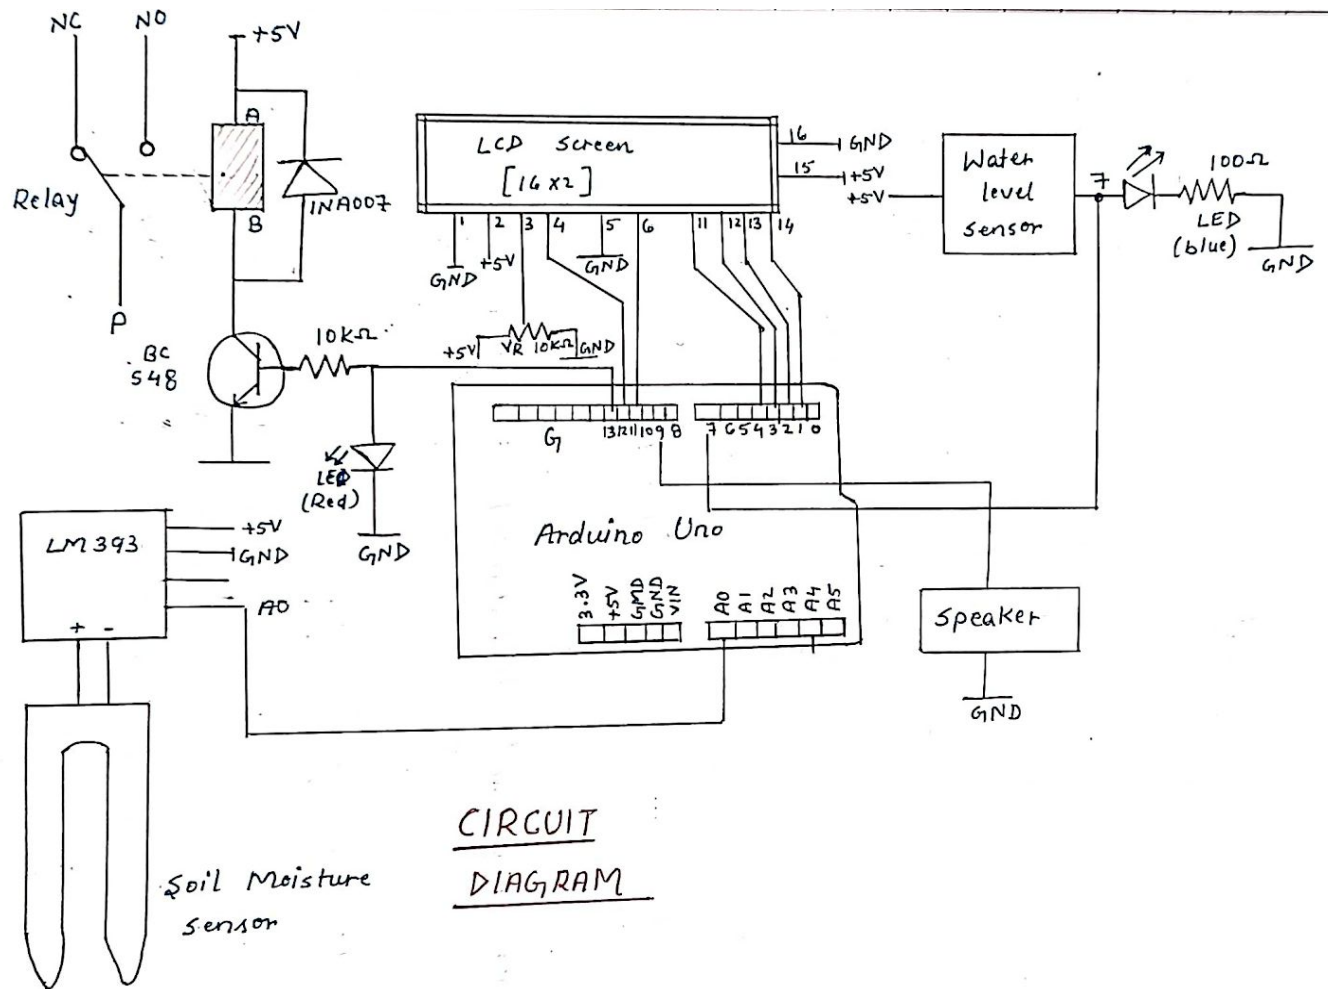 NC
NO
+5V
A
B
1NA007
Relay
P
BC
548
10KΩ
LED
(Red)
GND
LCD Screen
[16 x 2]
16
GND
15
+5V
1
2
3
4
5
6
11
12
13
14
GND
+5V
GND
+5V
VR
10KΩ
GND
+5V
Water
level
sensor
7
100Ω
LED
(blue)
GND
G
13
12
11
10
9
8
7
6
5
4
3
2
1
0
Arduino Uno
3.3V
+5V
GND
GND
VIN
A0
A1
A2
A3
A4
A5
LM393
+5V
GND
A0
+
-
Speaker
GND
Soil Moisture
sensor
CIRCUIT
DIAGRAM